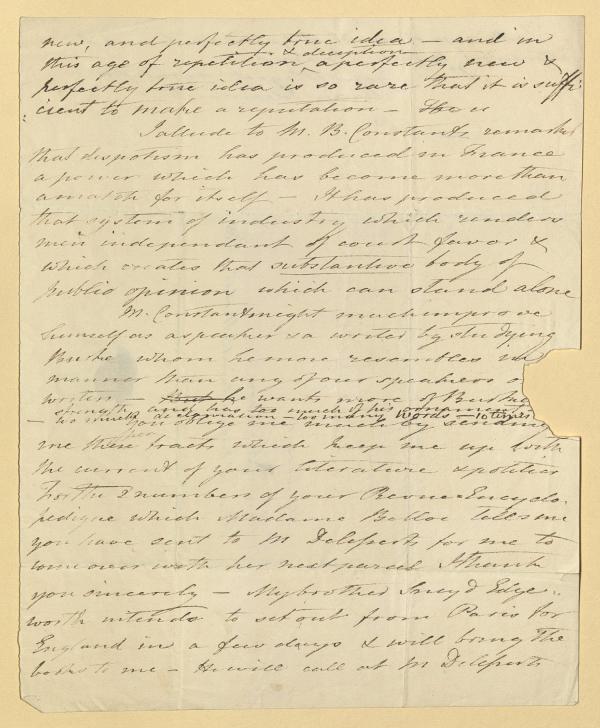 new, and perfectly true idea — and in
& deception
this age of repetition, a perfectly new &
perfectly true idea is so rare that it is suffi-
cient to make a reputation —
I allude to M. B. Constant's remark
that despotism has produced in France
a power which has become more than
a match for itself — It has produced
that system of industry which renders
men independant of court favor &
which creates that substantive body of
public opinion which can stand alone
M. Constant might much improve
himself as a speaker & a writer by studying
Burke whom he more resembles in
manner than any of our speakers o
writers — But he wants more of Burke
strength and has too much of his ornament
— too much declamation — too many words — 10 times
You oblige me much by sending
me these tracts which keep me up with
the current of your literature & politics
For the 2 numbers of your Revue Encyclo-
pedique which Madame Belloc tells me
you have sent to M Delesserts for me to
come over with her next parcel I thank
you sincerely — My brother Sneyd Edge-
worth intends to set out from Paris for
England in a few days & will bring the
books to me — He will call at M Delesserts